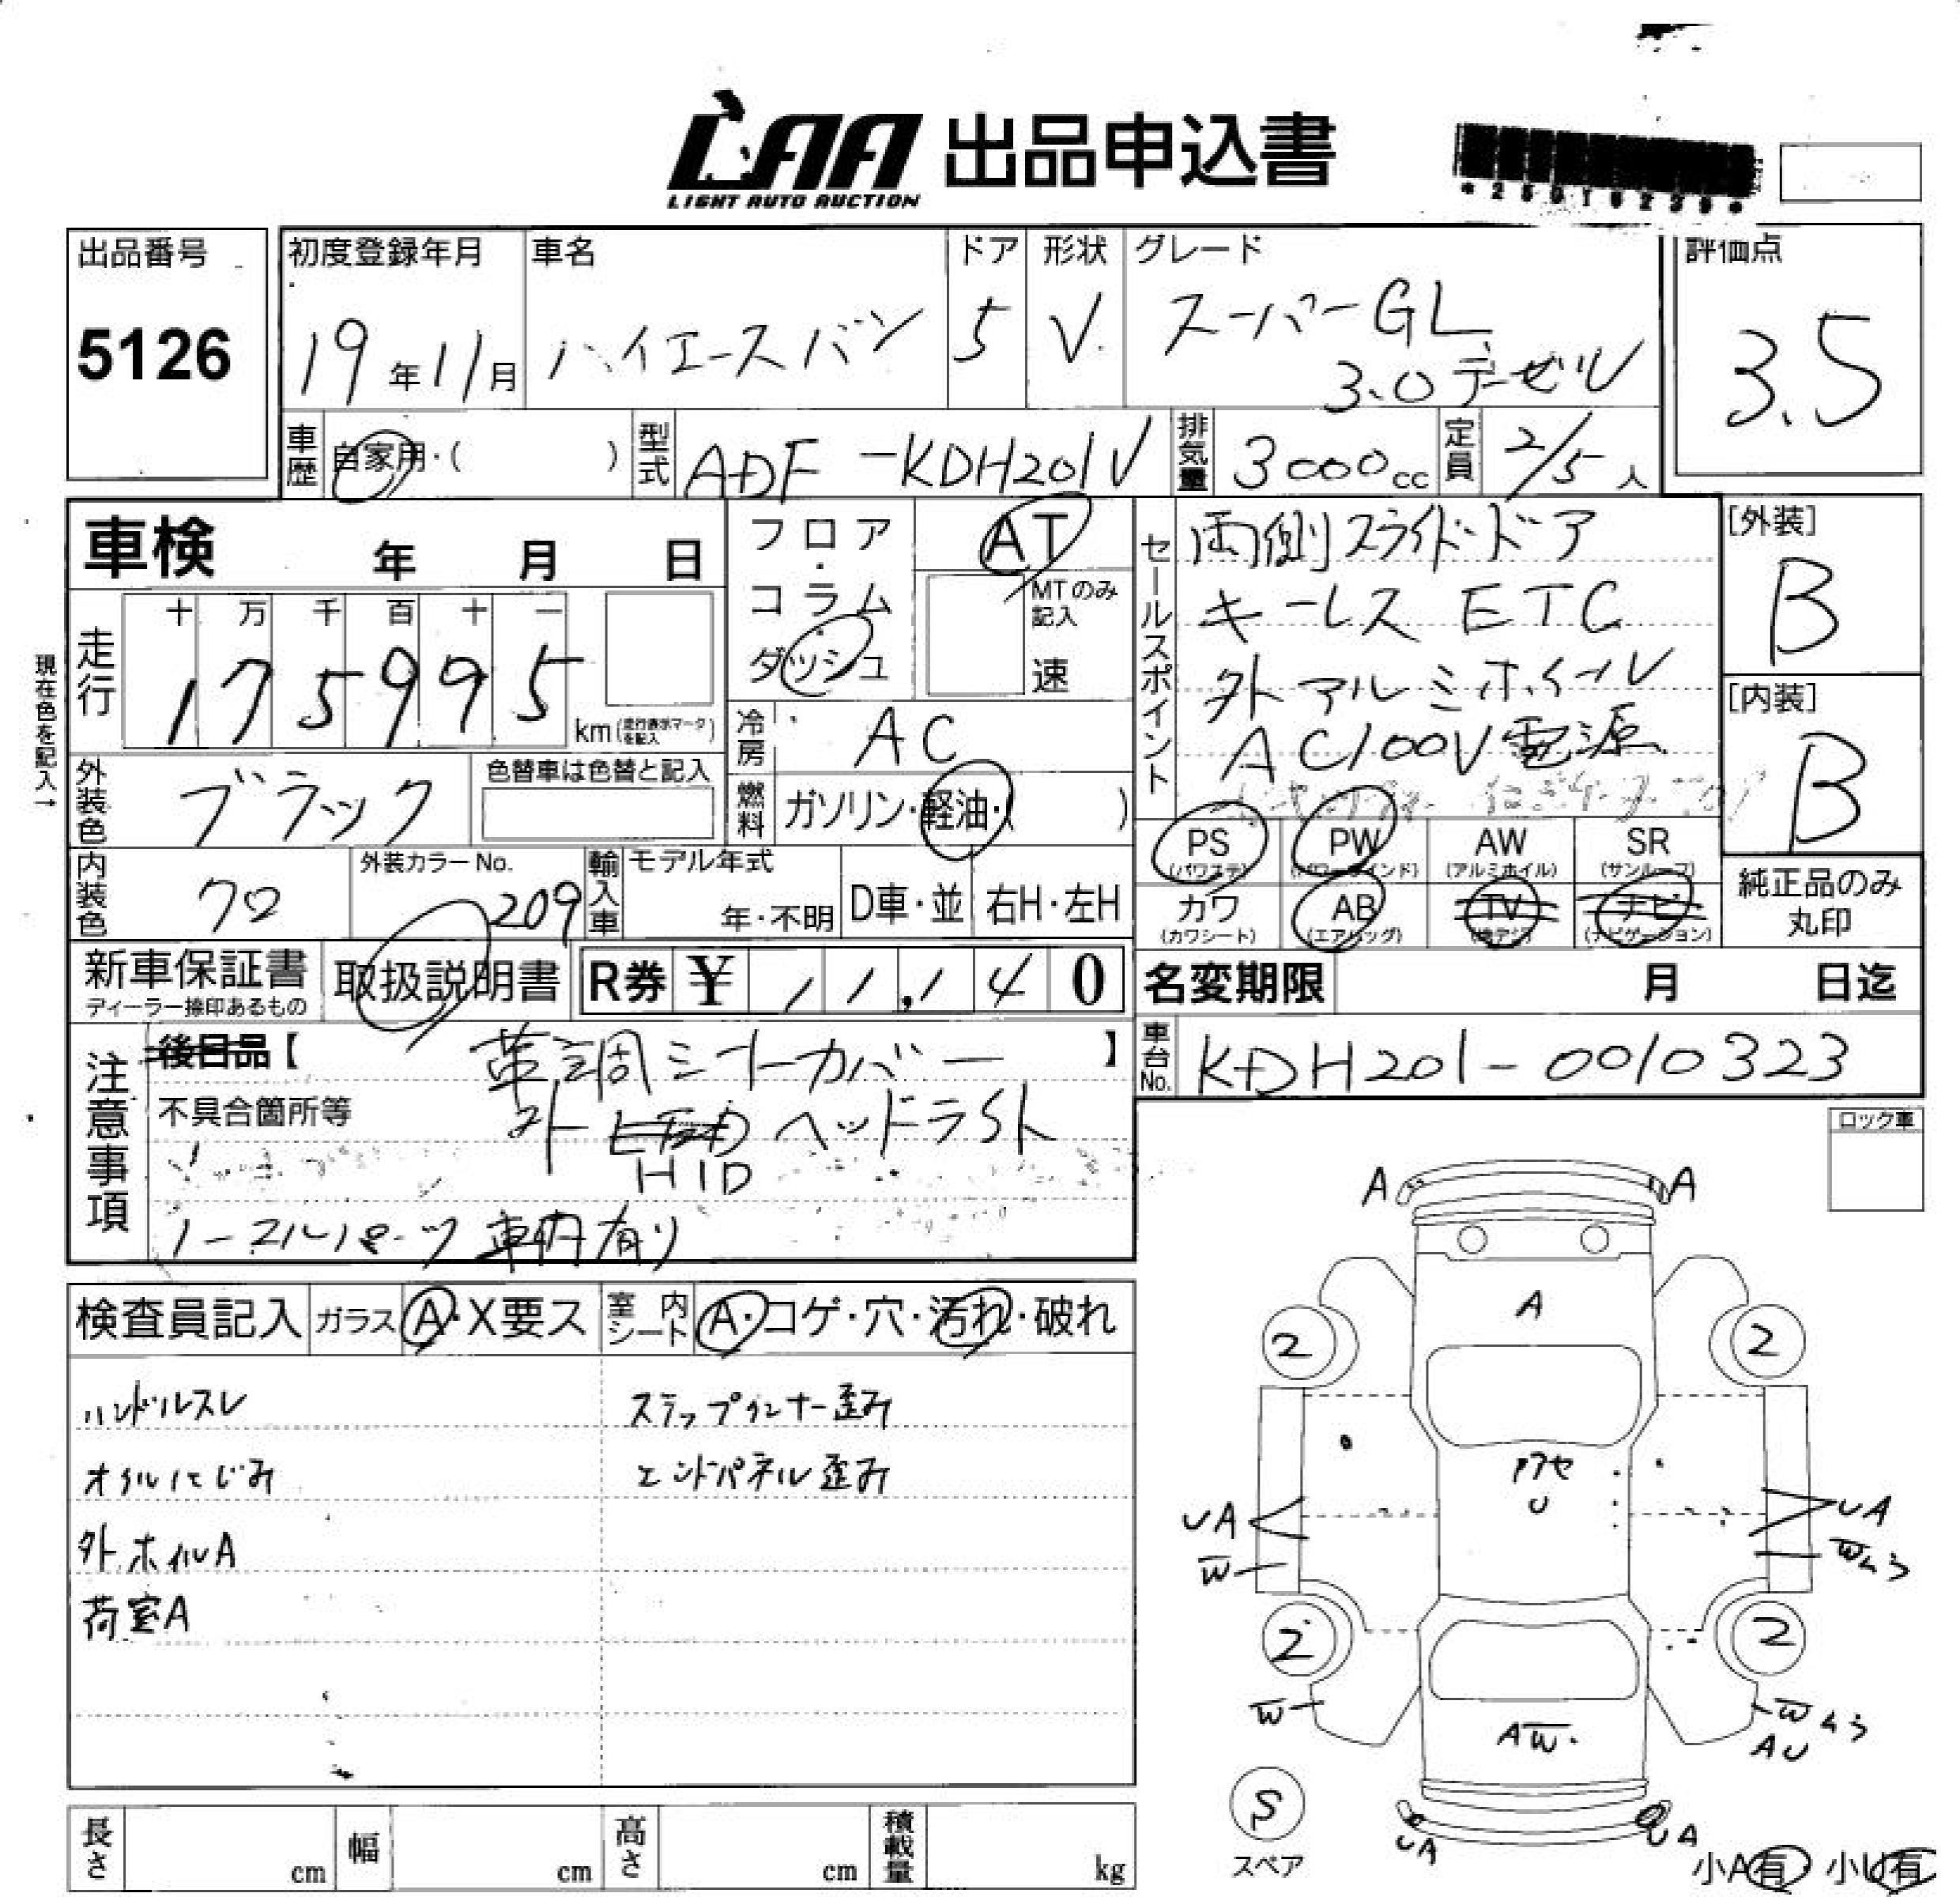 LAA 出品申込書
LIGHT AUTO AUCTION
出品番号
5126
初度登録年月
19年11月
車名
ハイエースバン
ドア
5
形状
V.
グレード
スーパーGL
3.0デーゼル
評価点
3.5
車歴
自家用・( )
型式
ADF-KDH201V
排気量
3000cc
定員
2/5人
車検 年 月 日
走行
十 万 千 百 十 一
175995
km(走行表示マークを記入)
現在色を記入→
フロア・コラム・ダッシュ
AT
MTのみ記入
速
冷房
AC
燃料
ガソリン・軽油・( )
セールスポイント
両側スライドドア
キーレス ETC
外アルミホイール
AC100V電源
[外装]
B
[内装]
B
外装色
ブラック
色替車は色替と記入
内装色
クロ
外装カラーNo.
209
輸入車
モデル年式
年・不明
D車・並
右H・左H
PS
(パワステ)
PW
(パワーウインド)
AW
(アルミホイル)
SR
(サンルーフ)
カワ
(カワシート)
AB
(エアバッグ)
TV
(地デジ)
ナビ
(ナビゲーション)
純正品のみ
丸印
新車保証書
ディーラー捺印あるもの
取扱説明書
R券 ¥ 11,140
名変期限 月 日迄
車台No.
KDH201-0010323
注意事項
後日品【 革調シートカバー 】
不具合箇所等 外 ヘッドライト
HID
ノーマルパーツ 車内有り
ロック車
検査員記入
ガラス
A・X要ス
室内シート
A・コゲ・穴・汚れ・破れ
ハンドルスレ
ステップインナー歪み
オイルにじみ
エンドパネル歪み
外ホイルA
荷室A
A
A
A
2
2
アセ
U
UA
UA
W
Wムラ
2
2
W
Wムラ
AU
AW
S
スペア
UA
UA
小A有 小U有
長さ cm
幅 cm
高さ cm
積載量 kg